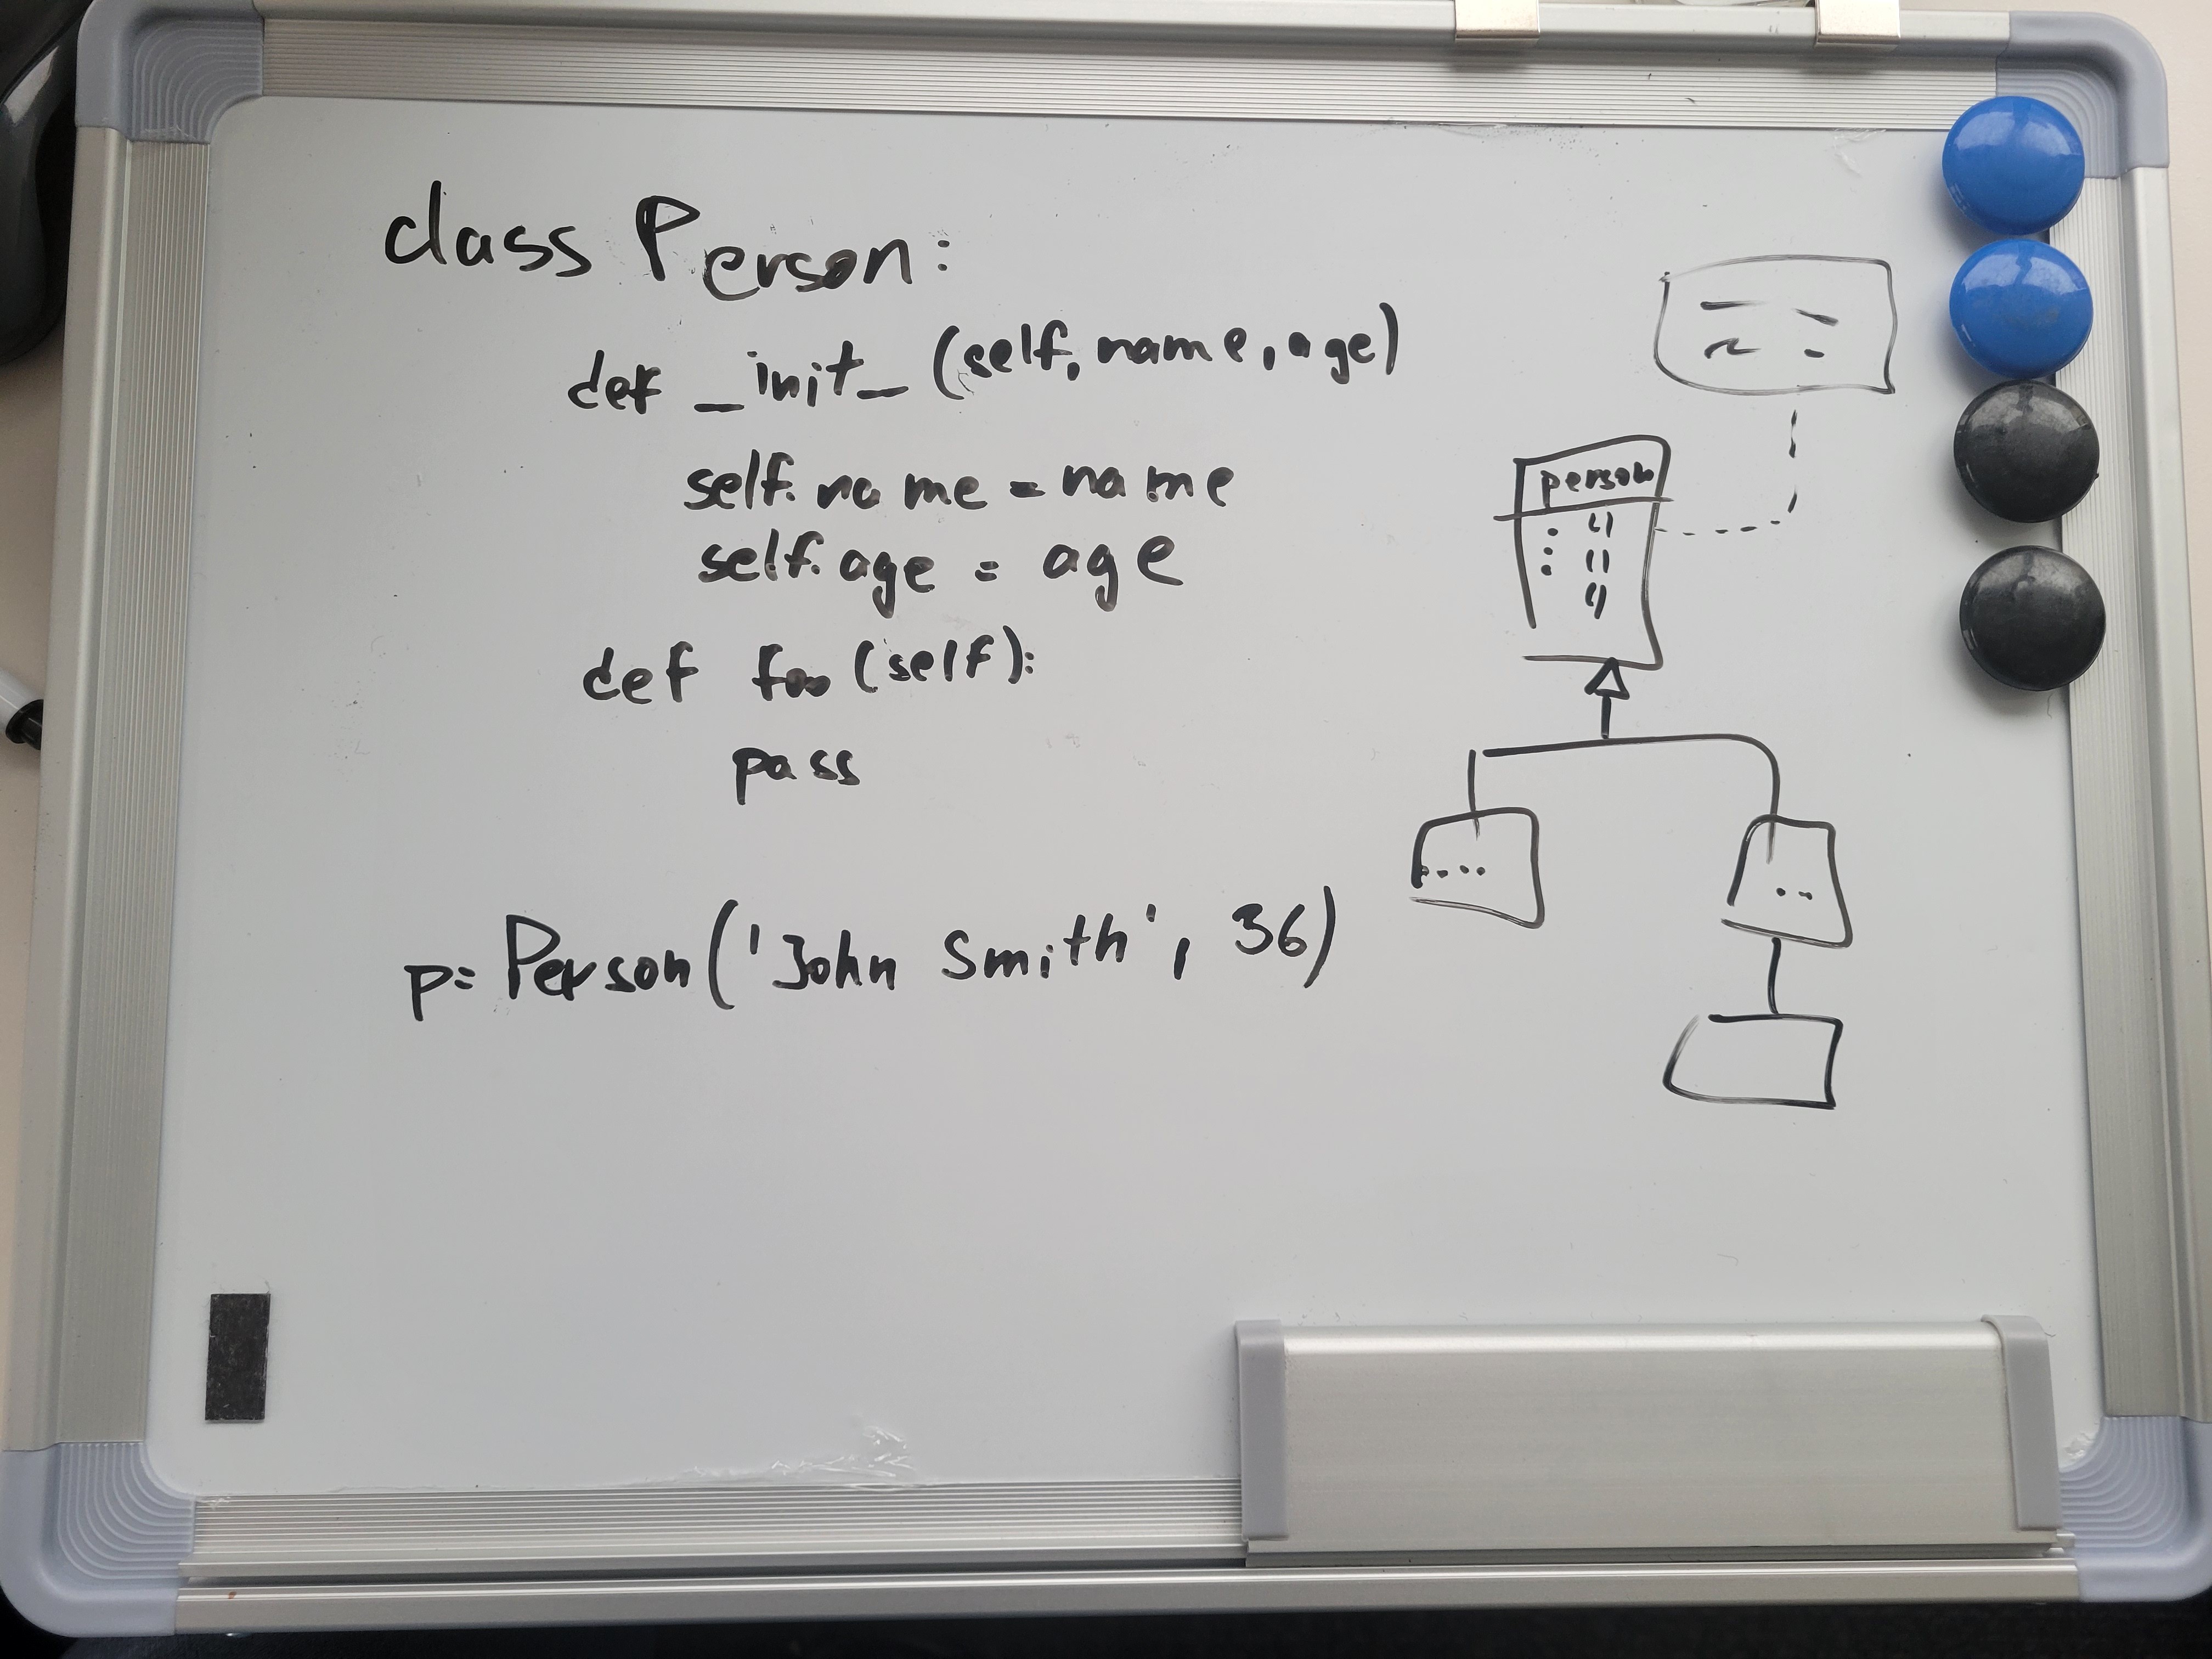 class Person:
def _init_ (self, name, age)
self.name = name
self.age = age
def foo (self):
pass
p= Person('John Smith', 36)
person